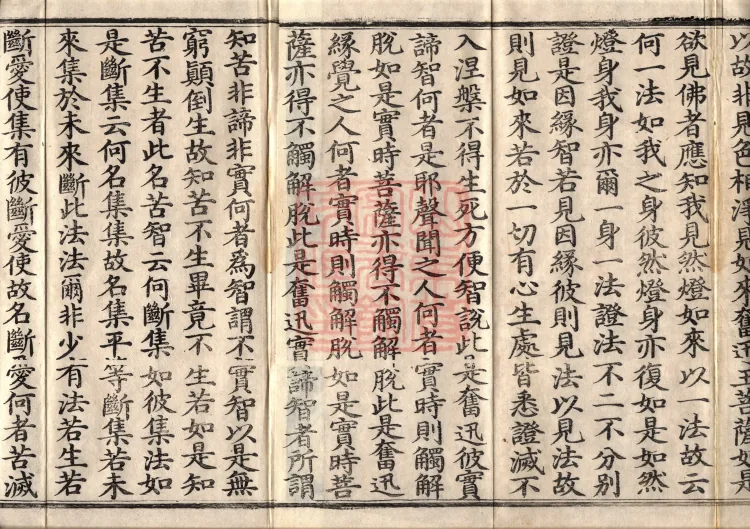 以故非見色相淨見如來奮迅王菩薩如是
欲見佛者應知我見然燈如來以一法故云
何一法如我之身彼然燈身亦復如是如然
燈身我身亦爾一身一法證法不二不分別
證是因緣智若見因緣彼則見法以見法故
則見如來若於一切有心生處皆悉證滅不
入涅槃不得生死方便智說此是奮迅彼實
諦智何者是耶聲聞之人何者實時則觸解
脫如是實時菩薩亦得不觸解脫此是奮迅
緣覺之人何者實時則觸解脫如是實時菩
薩亦得不觸解脫此是奮迅實諦智者所謂
知苦非諦非實何者為智謂不實智以是無
窮顛倒生故知苦不生畢竟不生若如是知
苦不生者此名苦智云何斷集如彼集法如
是斷集云何名集集故名集平等斷集若未
來集於未來斷此法法爾非少有法若生若
斷愛使集有彼斷愛使故名斷愛何者苦滅